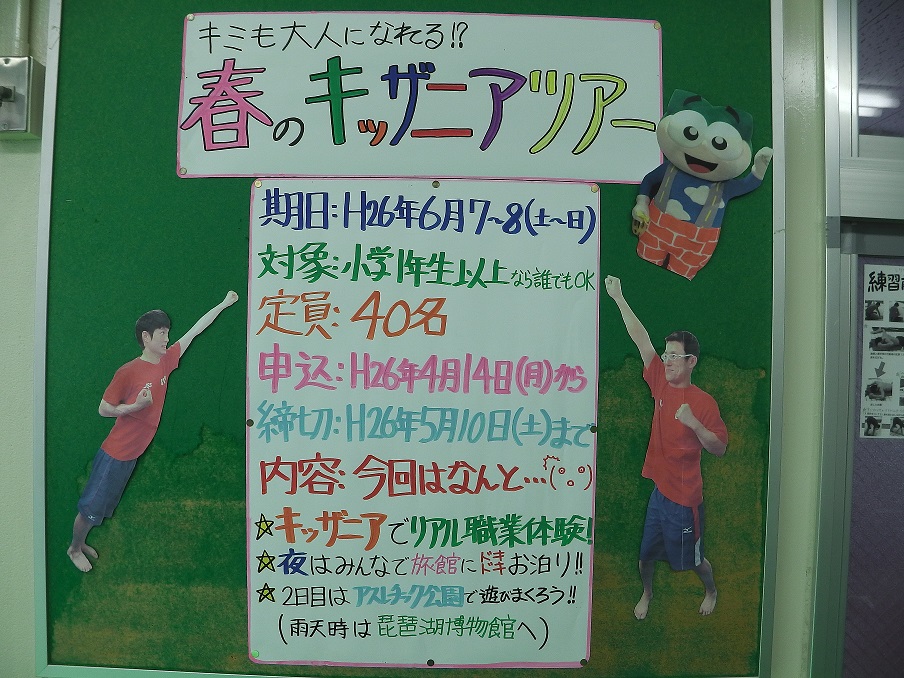 キミも大人になれる!?
春のキッザニアツアー
期日:H26年6月7~8(土~日)
対象:小学1年生以上なら誰でもOK
定員:40名
申込:H26年4月14日(月)から
締切:H26年5月10日(土)まで
内容:今回はなんと…(°。°)
☆キッザニアでリアル職業体験!
☆夜はみんなで旅館にドキドキお泊り!!
☆2日目はアスレチック公園で遊びまくろう!!
(雨天時は琵琶湖博物館へ)
練習